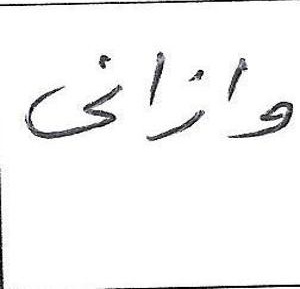 وازانی